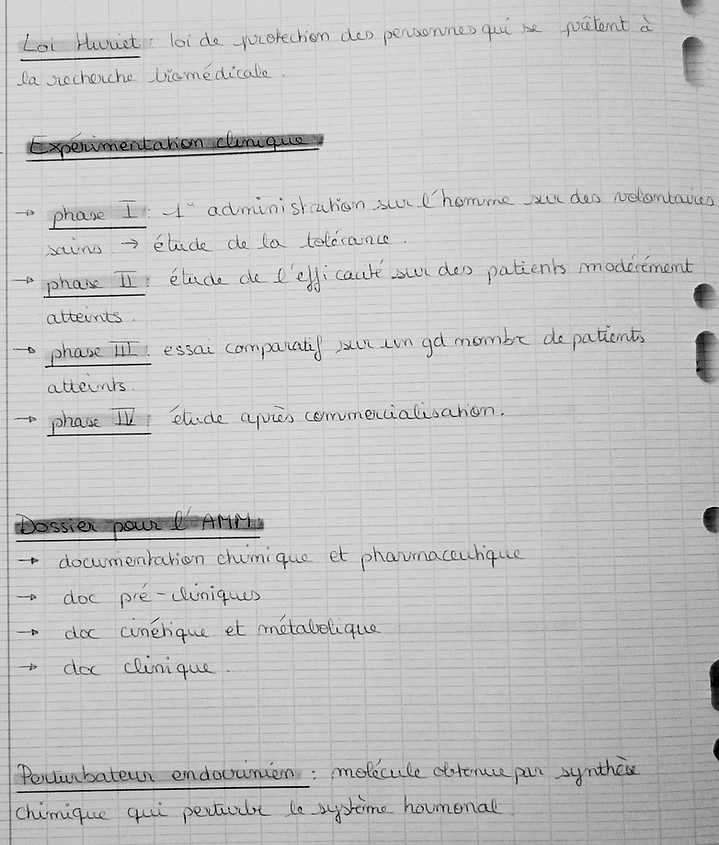 Loi Huriet : loi de protection des personnes qui se prêtent à
la recherche biomédicale.
Expérimentation clinique :
→ phase I : 1° administration sur l'homme sur des volontaires
sains → étude de la tolérance.
→ phase II : étude de l'efficacité sur des patients modérément
atteints.
→ phase III : essai comparatif sur un gd nombre de patients
atteints.
→ phase IV : étude après commercialisation.
Dossier pour l'AMM :
→ documentation chimique et pharmaceutique
→ doc pré-cliniques
→ doc cinétique et métabolique
→ doc clinique.
Perturbateur endocrinien : molécule obtenue par synthèse
chimique qui perturbe le système hormonal